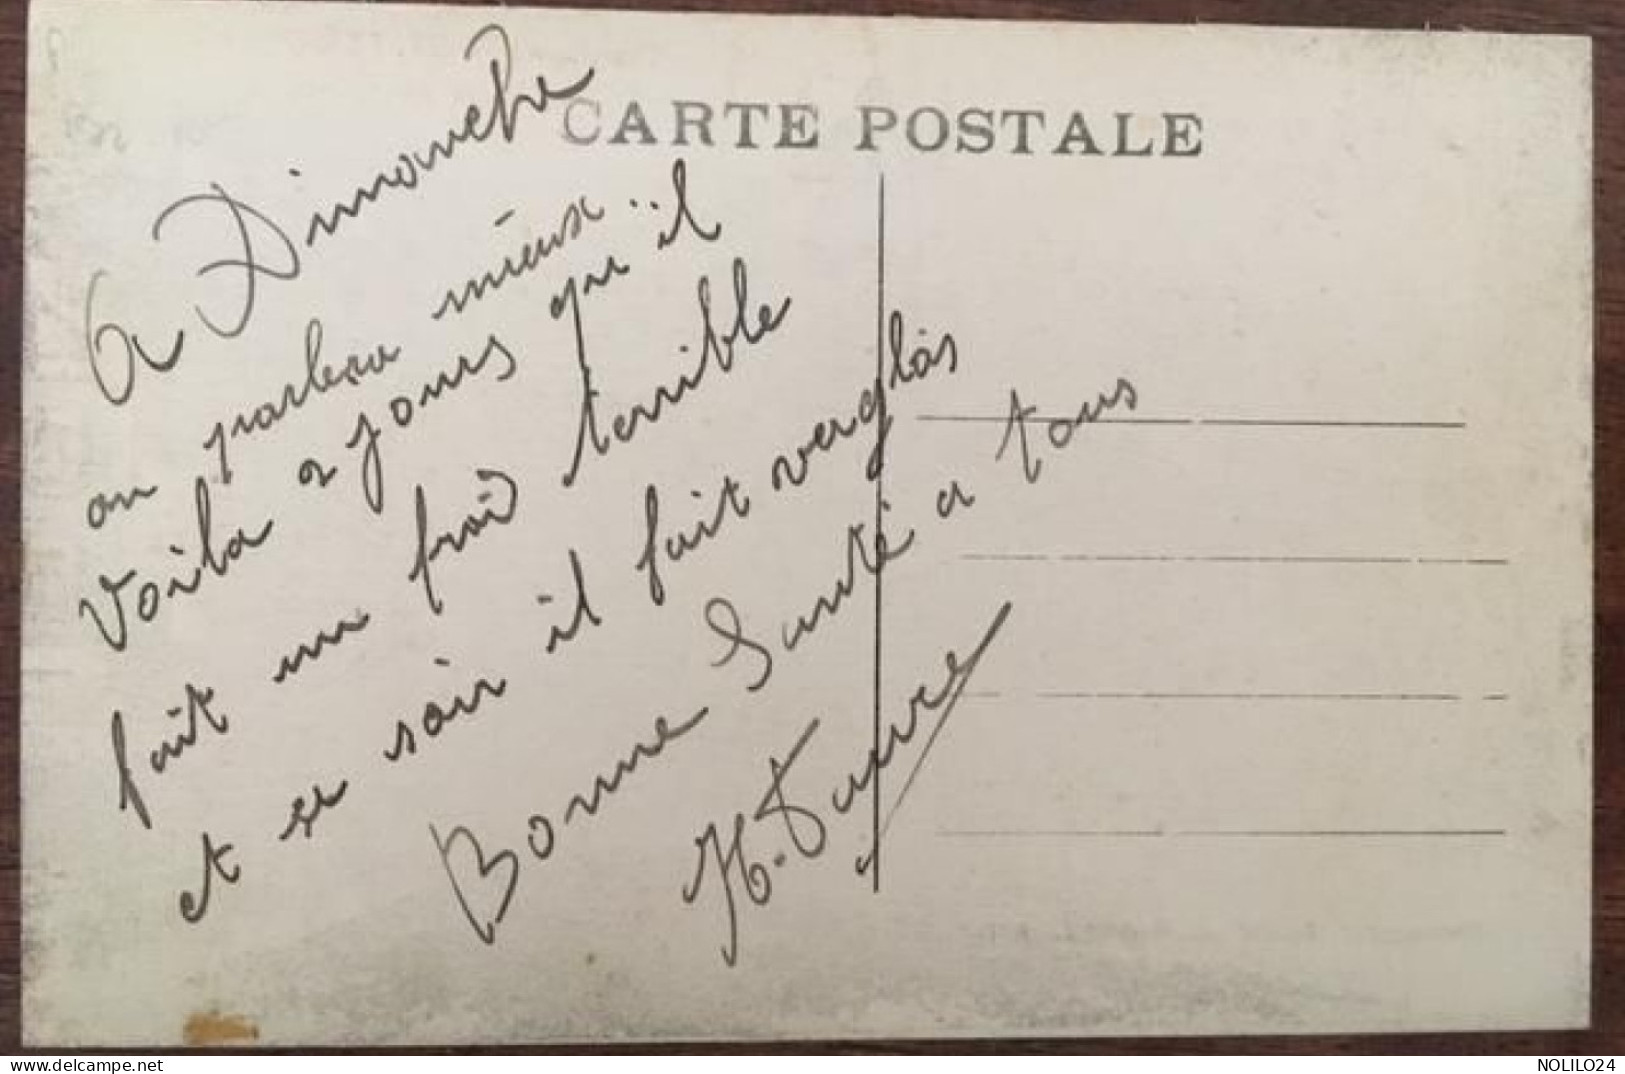 CARTE POSTALE
a Dimanche
on parlera mieux
Voila 2 jours qu'il
fait un froid terrible
et se soir il fait verglas
Bonne Santé a tous
H. Favre
NOLILO24